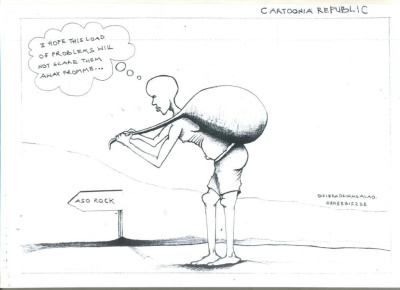 CARTOONIA REPUBLIC
I HOPE THIS LOAD
OF PROBLEMS WILL
NOT SCARE THEM
AWAY FROMME...
ASO ROCK